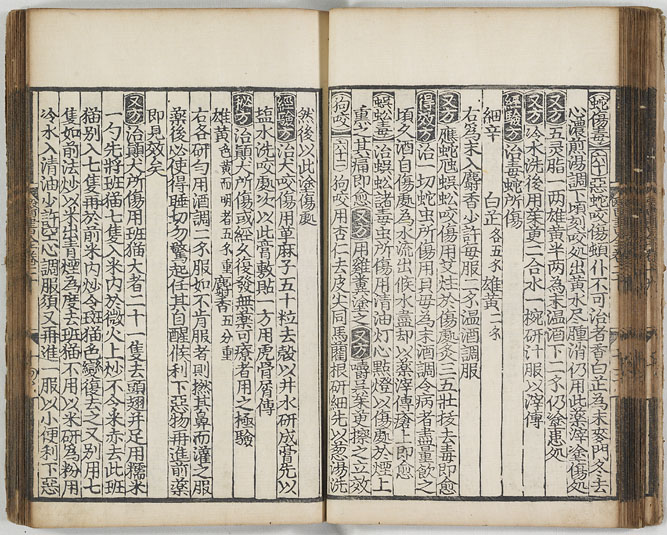 蛇傷毒(六十)惡蛇咬傷頻仆不可治者香白芷為末麥門冬去
心濃煎湯調下頃刻咬處出黃水尽腫消仍用此藥滓塗傷处
又方五灵脂一两雄黃半两為末温酒下二戔仍塗患処
又方冷水洗後用茱萸二合水一椀研汁服以滓傅
經驗方治毒蛇所傷
細辛 白芷各五戔雄黃二戔
右為末入麝香少許每服二戔温酒調服
應蛇虺蜈蚣咬傷用艾炷於傷處灸三五壯拔去毒即愈
得效方治一切蛇虫所傷用貝毋為末酒調令病者盡量飲之
頃久酒自傷處為水流出候水盡却以藥滓傅瘡上即愈
蜈蚣毒治蜈蚣諸毒虫所傷用清油灯心點燈以傷處於煙上
熏少其痛即愈又方用雞糞塗之又方嚼吳茱萸擦之立效
狗咬(六十二)狗咬用杏仁去皮尖同馬藺根研細先以葱湯洗
然後以此塗傷處
經驗方治犬咬傷用萆麻子五十粒去殼以井水研成膏先以
塩水洗咬處次以此膏敷貼一方用虎骨屑傳
秘方治顛犬所傷或經久復發無藥可療者用之極驗
雄黃色黃而明者五戔重麝香五分重
右各研勻用酒調二戔服如不肯服者則撚其鼻而灌之服
藥後必使得睡切勿驚起任其自醒候利下惡物再進前藥
即見效矣
又方治顛犬所傷用班猫大者二十一隻去頭翅并足用糯米
一勺先將班猫七隻入米内於微火上炒不令米赤去此班
猫别入七隻再於前米内炒令班猫色變復去之又别用七
隻如前法炒以米出青煙為度去班猫不用以米研為粉用
冷水入清油少許空心調服須又再進一服以小便利下惡